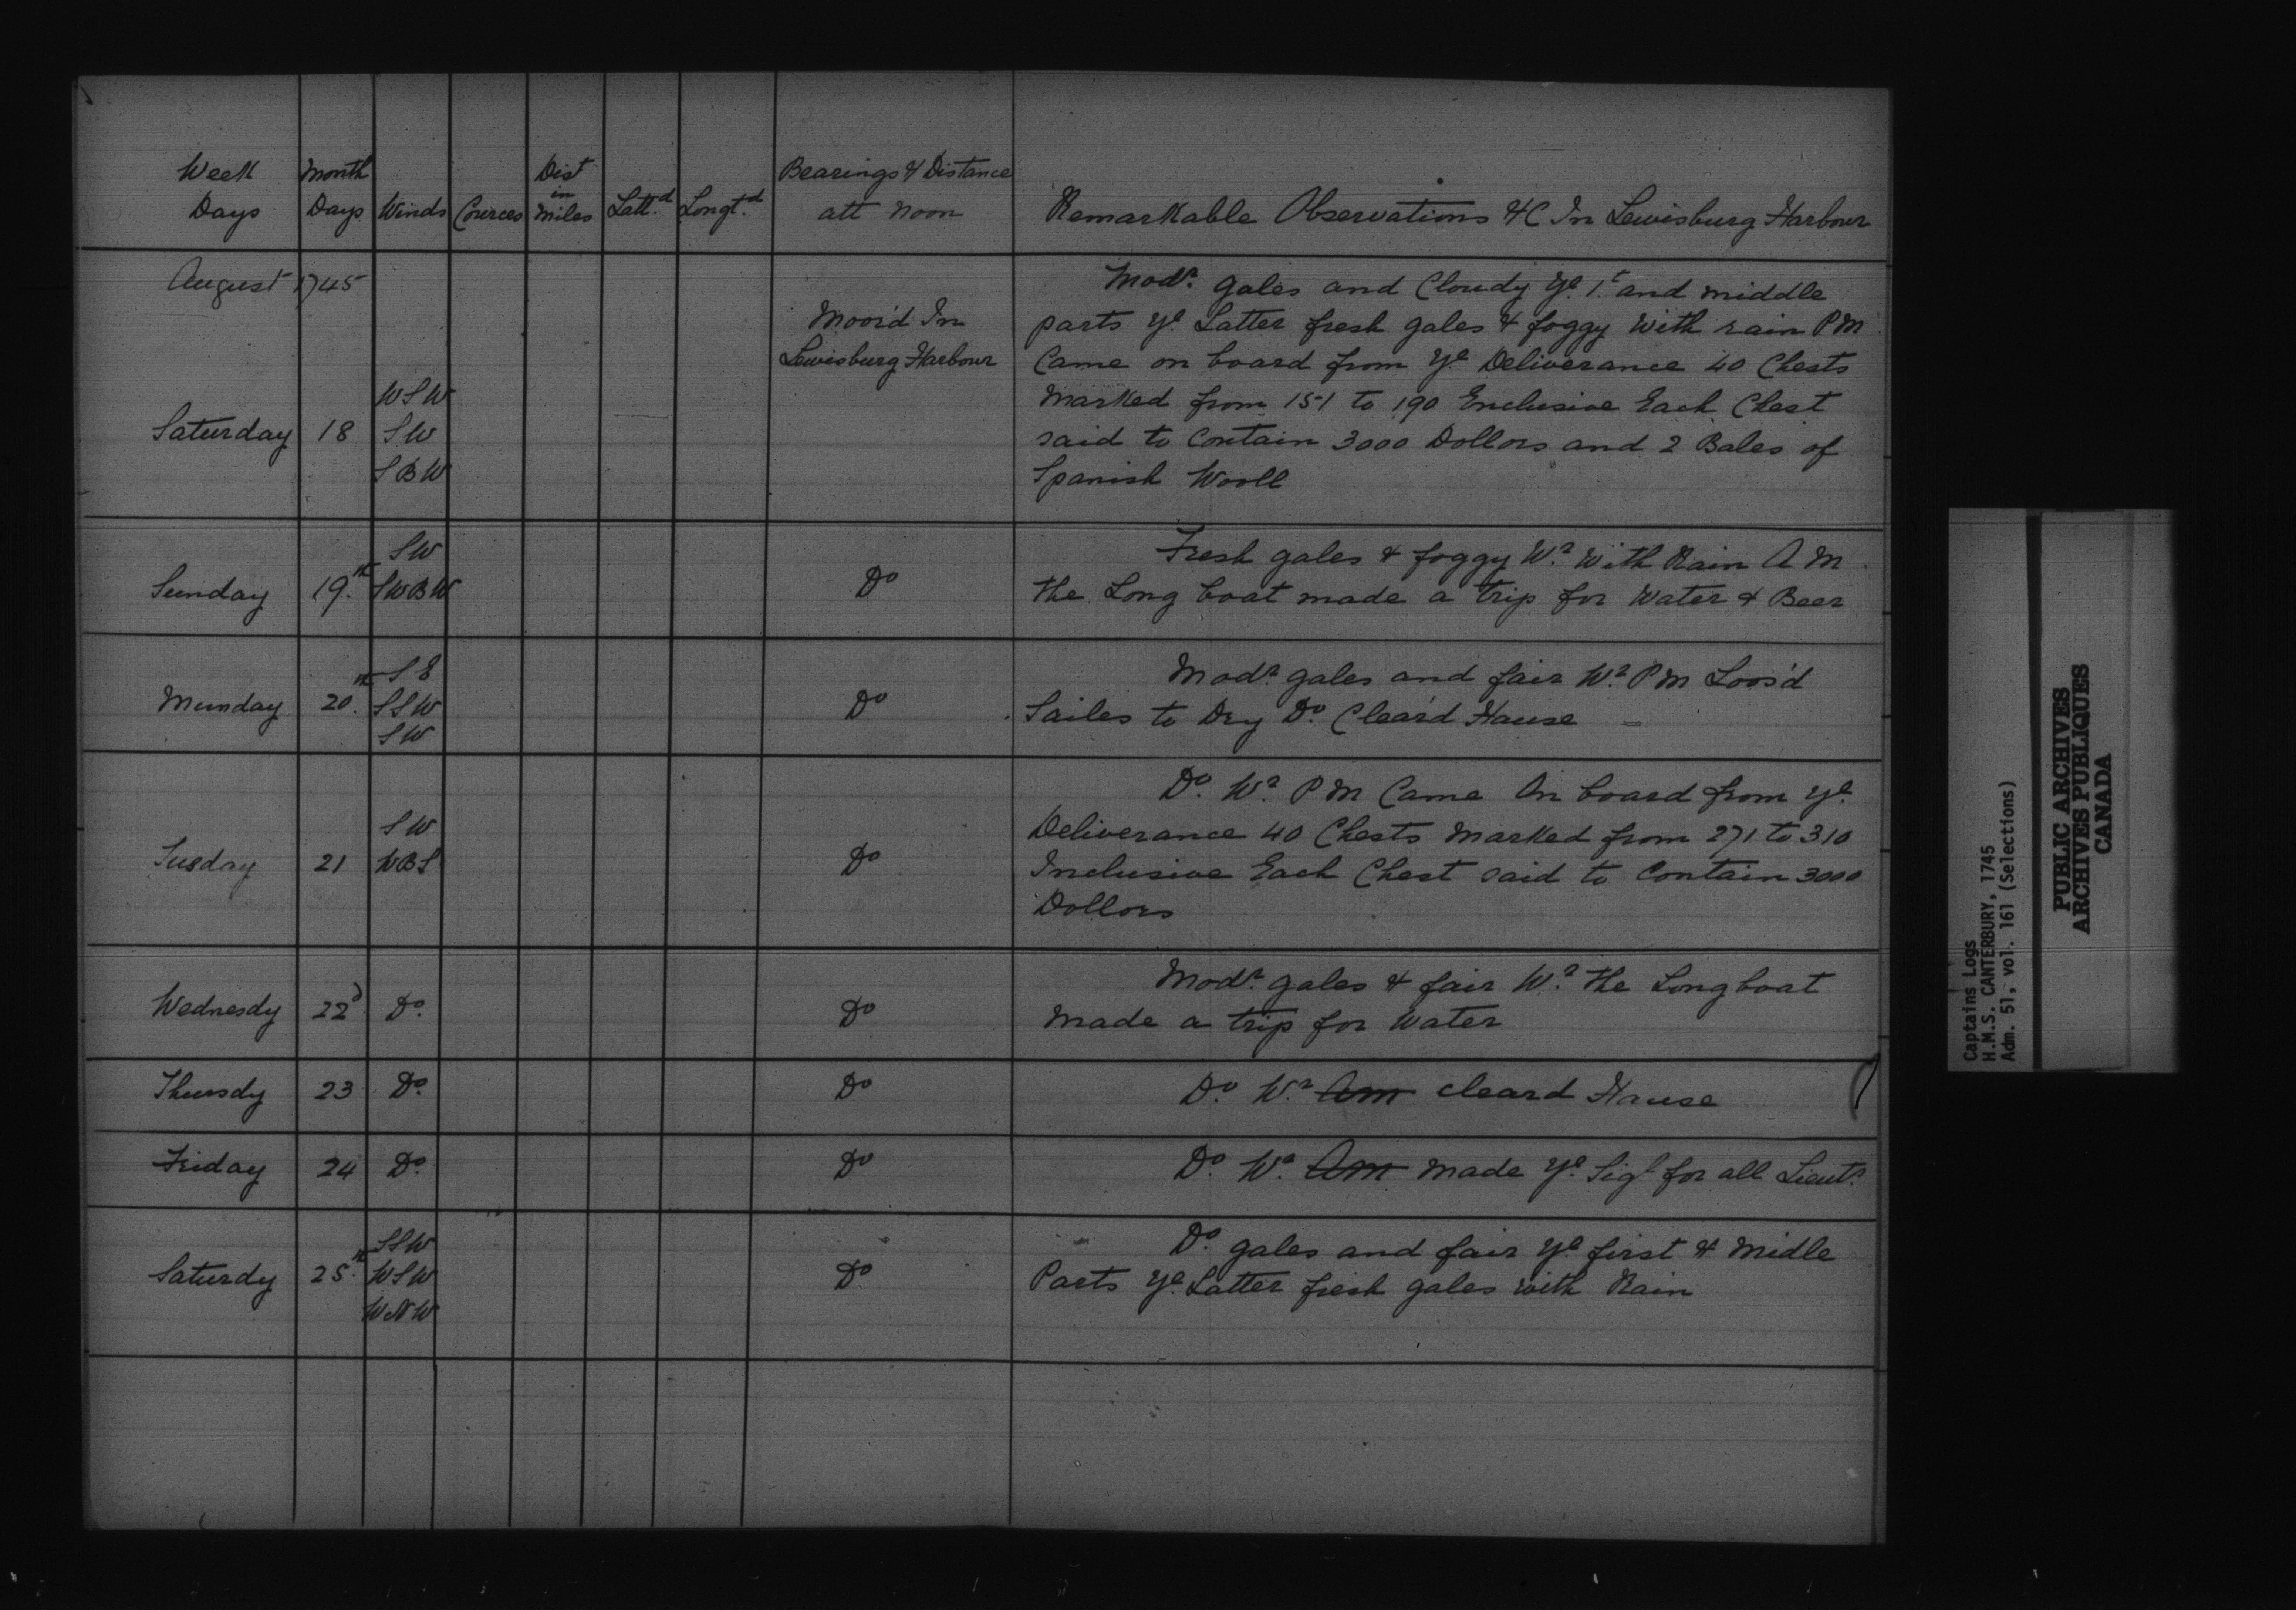 Week Days
Month Days
Winds
Cources
Dist in Miles
Latt.d
Longt.d
Bearings & Distance att Noon
Remarkable Observations &C In Lewisburg Harbour
August 1745
Moor'd In
Lewisburg Harbour
Saturday 18
WSW
SW
SBW
Modr. gales and Cloudy Ye. 1.t and middle
parts Ye Latter fresh gales & foggy With rain PM
Came on board from Ye Deliverance 40 Chests
Marked from 151 to 190 Enclusive Each Chest
said to Contain 3000 Dollors and 2 Bales of
Spanish Wooll
Sunday 19.th
SW
SWBW
Do
Fresh gales & foggy Wr. With Rain A M
the Long boat made a trip for Water & Beer
Munday 20.th
SE
SSW
SW
Do
Modr. gales and fair Wr. PM Loos'd
Sailes to Dry Do. Clear'd Hause
Tusday 21
SW
WBS
Do
Do. Wr. PM Came On board from Ye.
Deliverance 40 Chests Marked from 271 to 310
Inclusive Each Chest said to Contain 3000
Dollors
Wednesdy 22d. Do.
Do
Modr. gales & fair Wr. the Longboat
Made a trip for Water
Thursdy 23 Do.
Do
Do. Wr. AM cleard Hause
Friday 24 Do.
Do
Do. Wr. AM Made Ye. Sigl for all Lieuts.
Saturdy 25.th
SSW
WSW
WNW
Do.
Do. gales and fair Ye. first & Midle
Parts Ye. Latter fresh gales with Rain
Captains Logs
H.M.S. CANTERBURY, 1745
Adm. 51, vol. 161 (Selections)
PUBLIC ARCHIVES
ARCHIVES PUBLIQUES
CANADA